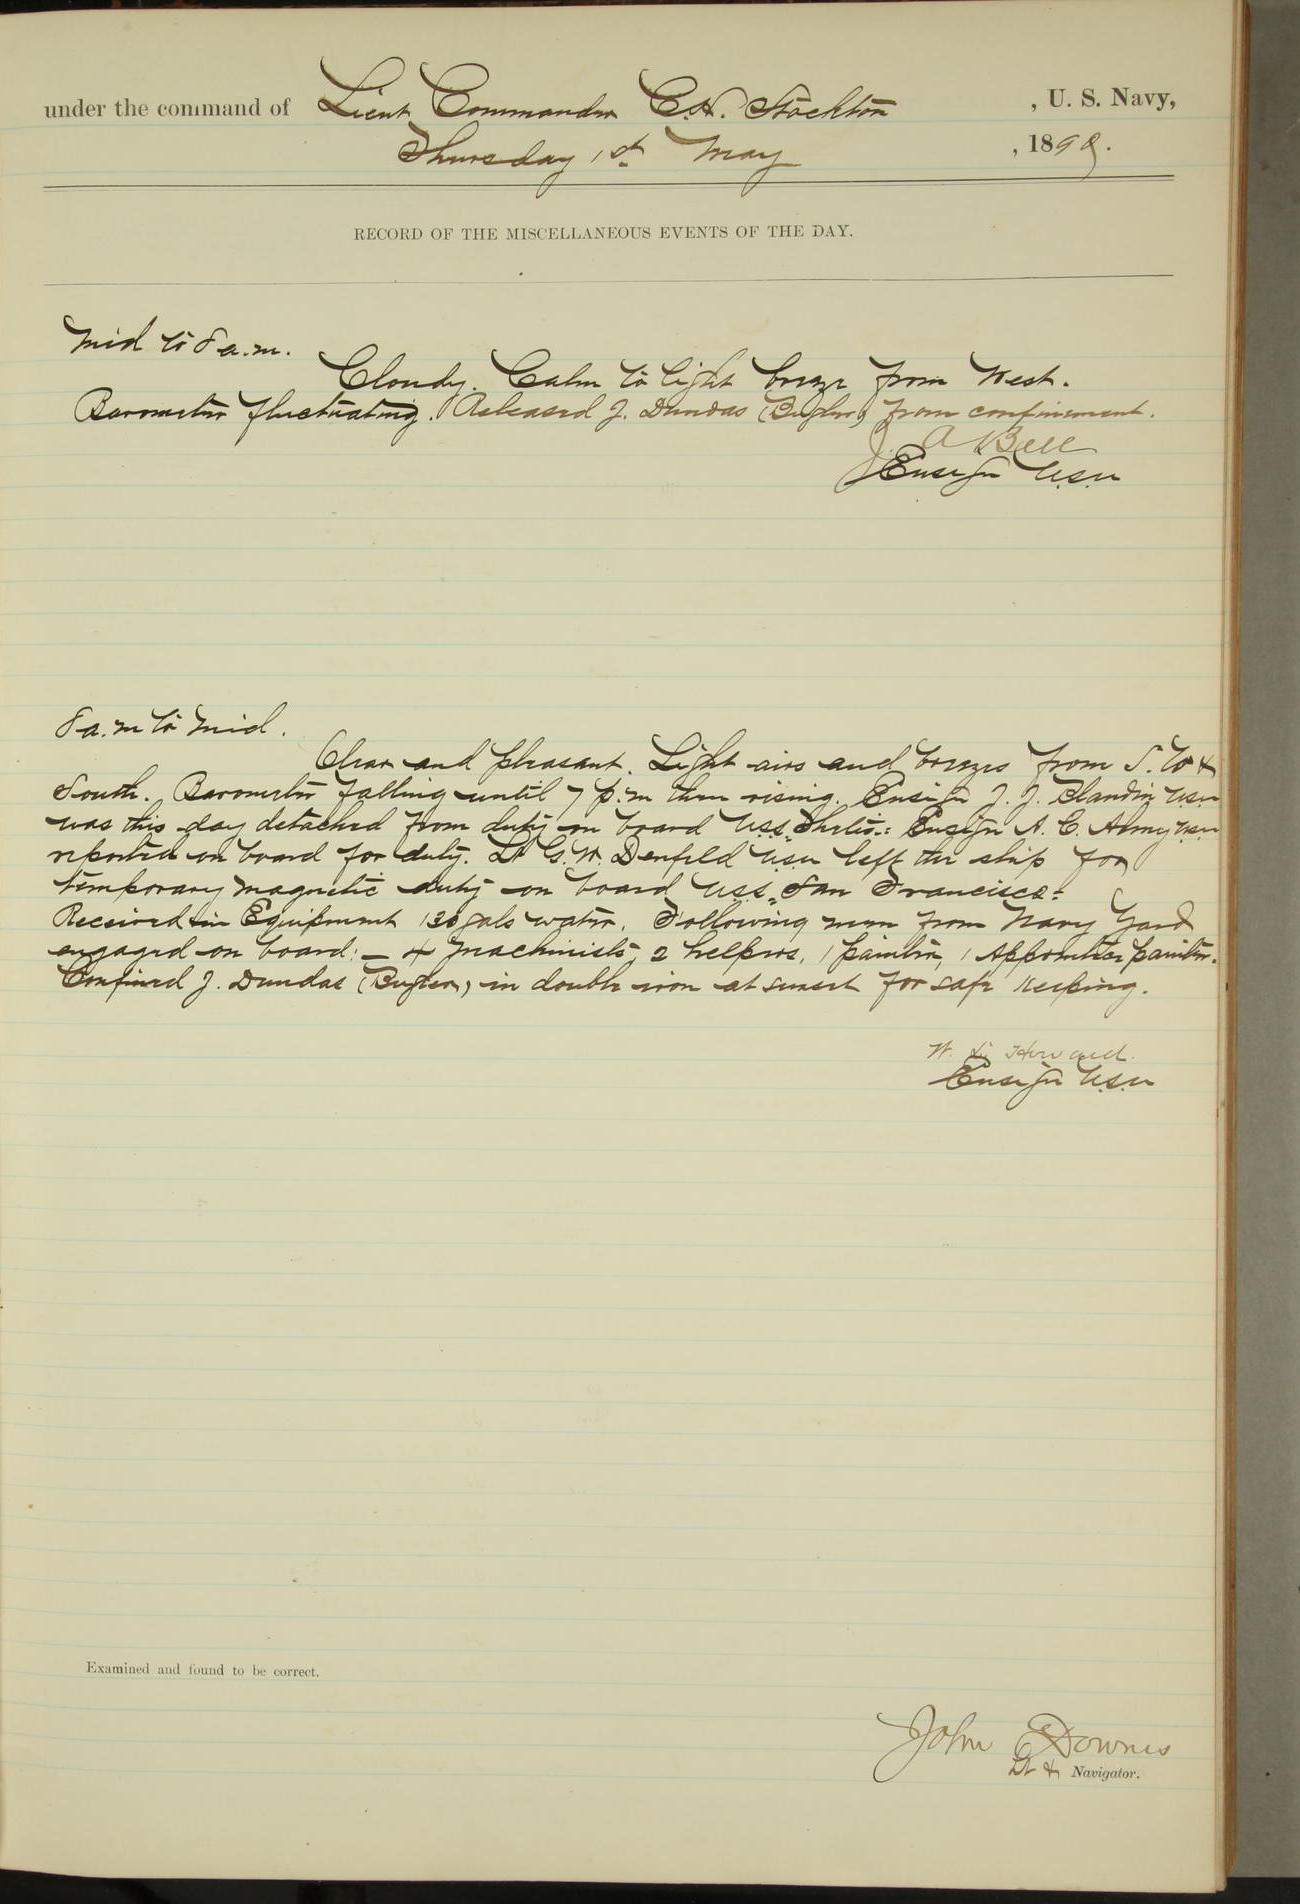 under the command of Lieut Commander C.H. Stockton , U. S. Navy,
Thursday 1st May , 1890.
RECORD OF THE MISCELLANEOUS EVENTS OF THE DAY.
Mid to 8 a.m.
Cloudy. Calm to light breeze from West.
Barometer fluctuating. Released J. Dundas (Bugler) from confinement.
J. A Bell
Ensign U.S.N
8 a.m to Mid.
Clear and pleasant. Light airs and breezes from S. W &
South. Barometer falling until 7 p.m then rising. Ensign J. J. Blandin USN
was this day detached from duty on board U.S.S. Thetis: Ensign A. C. Almy U.S.N
reported on board for duty. Lt G. W. Denfeld U.S.N left the ship for
temporary magnetic duty on board U.S.S. "San Francisco:
Received in Equipment 130 gals water. Following men from Navy Yard
engaged on board: — 4 Machinists, 2 helpers, 1 painter, 1 Apprentice painter.
Confined J. Dundas (Bugler), in double iron at sunset for safe keeping.
W. L. Howard.
Ensign U.S.N
Examined and found to be correct.
John Downes
Lt & Navigator.